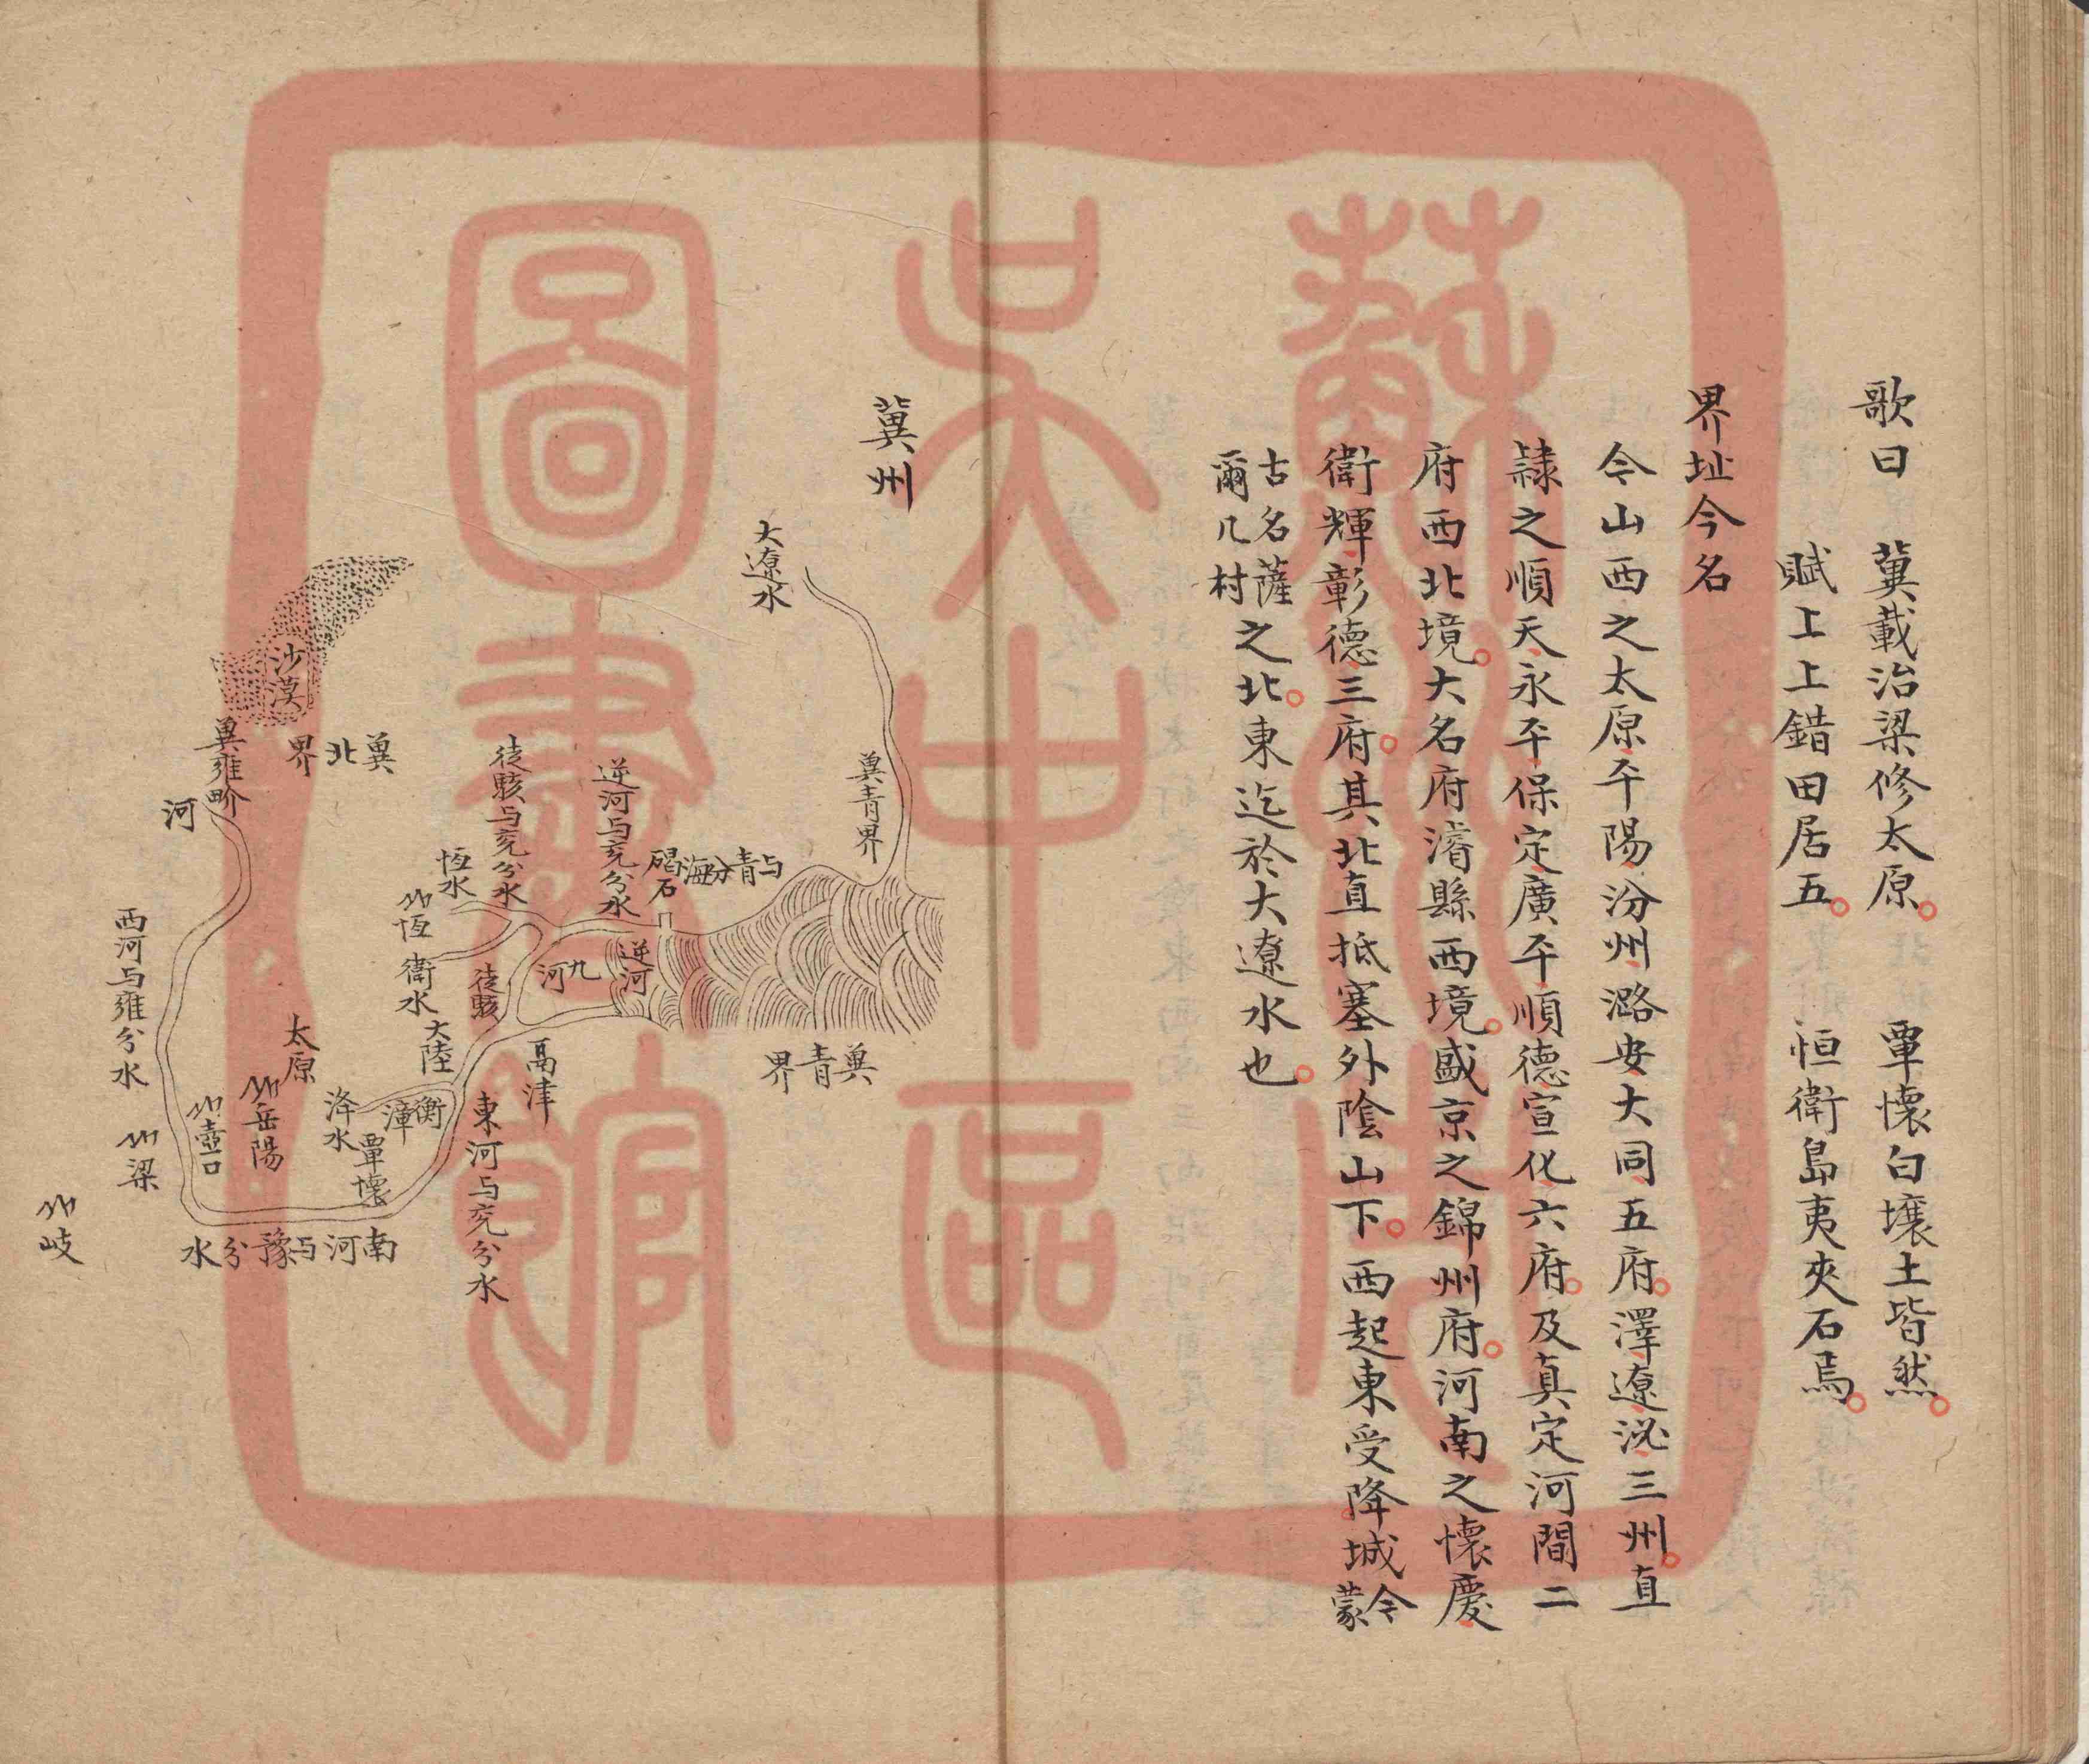 歌曰　冀載治梁修太原。　覃懷白壤土皆然。
賦上上錯田居五。　恒衛島夷夾石焉。
界址今名
今山西之太原平陽汾州潞安大同五府。澤遼泌三州。直
隸之順天永平保定廣平順德宣化六府。及真定河間二
府西北境。大名府濬縣西境。盛京之錦州府。河南之懷慶
衛輝彰德三府。其北直抵塞外陰山下。西起東受降城今蒙
古名薩爾几村之北。東迄於大遼水也。
冀州
大遼水
冀青界
与青分海
碣石
逆河与兗分水
逆河
九河
徒駭与兗分水
徒駭
恆水
恆
衛水
大陸
鬲津
冀青界
東河与兗分水
衡漳
洚水
覃懷
太原
岳陽
壺口
南河与豫分水
沙漠
冀北界
冀雍界
河
西河与雍分水
梁
岐
蘇州
吳中區
圖書館